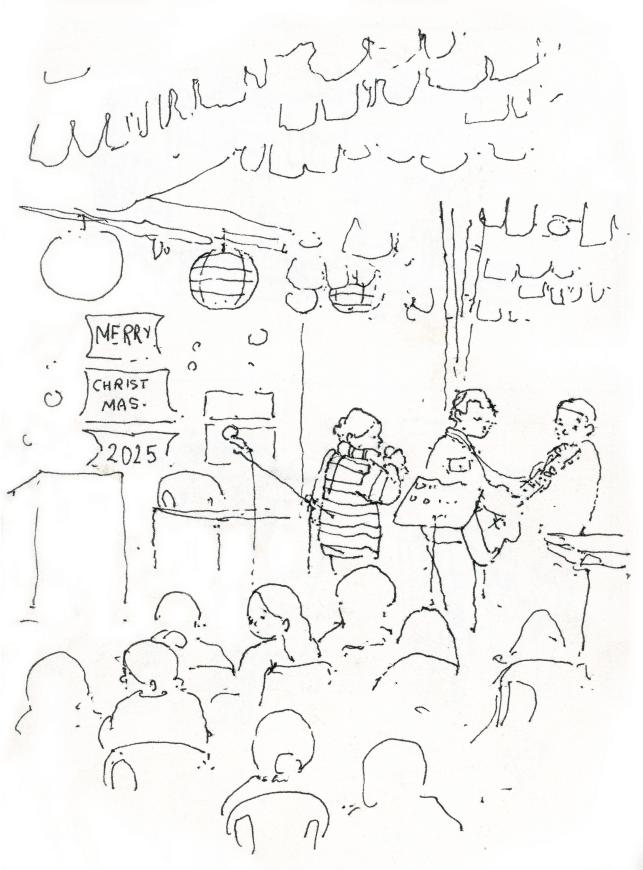 MERRY
CHRIST
MAS.
2025